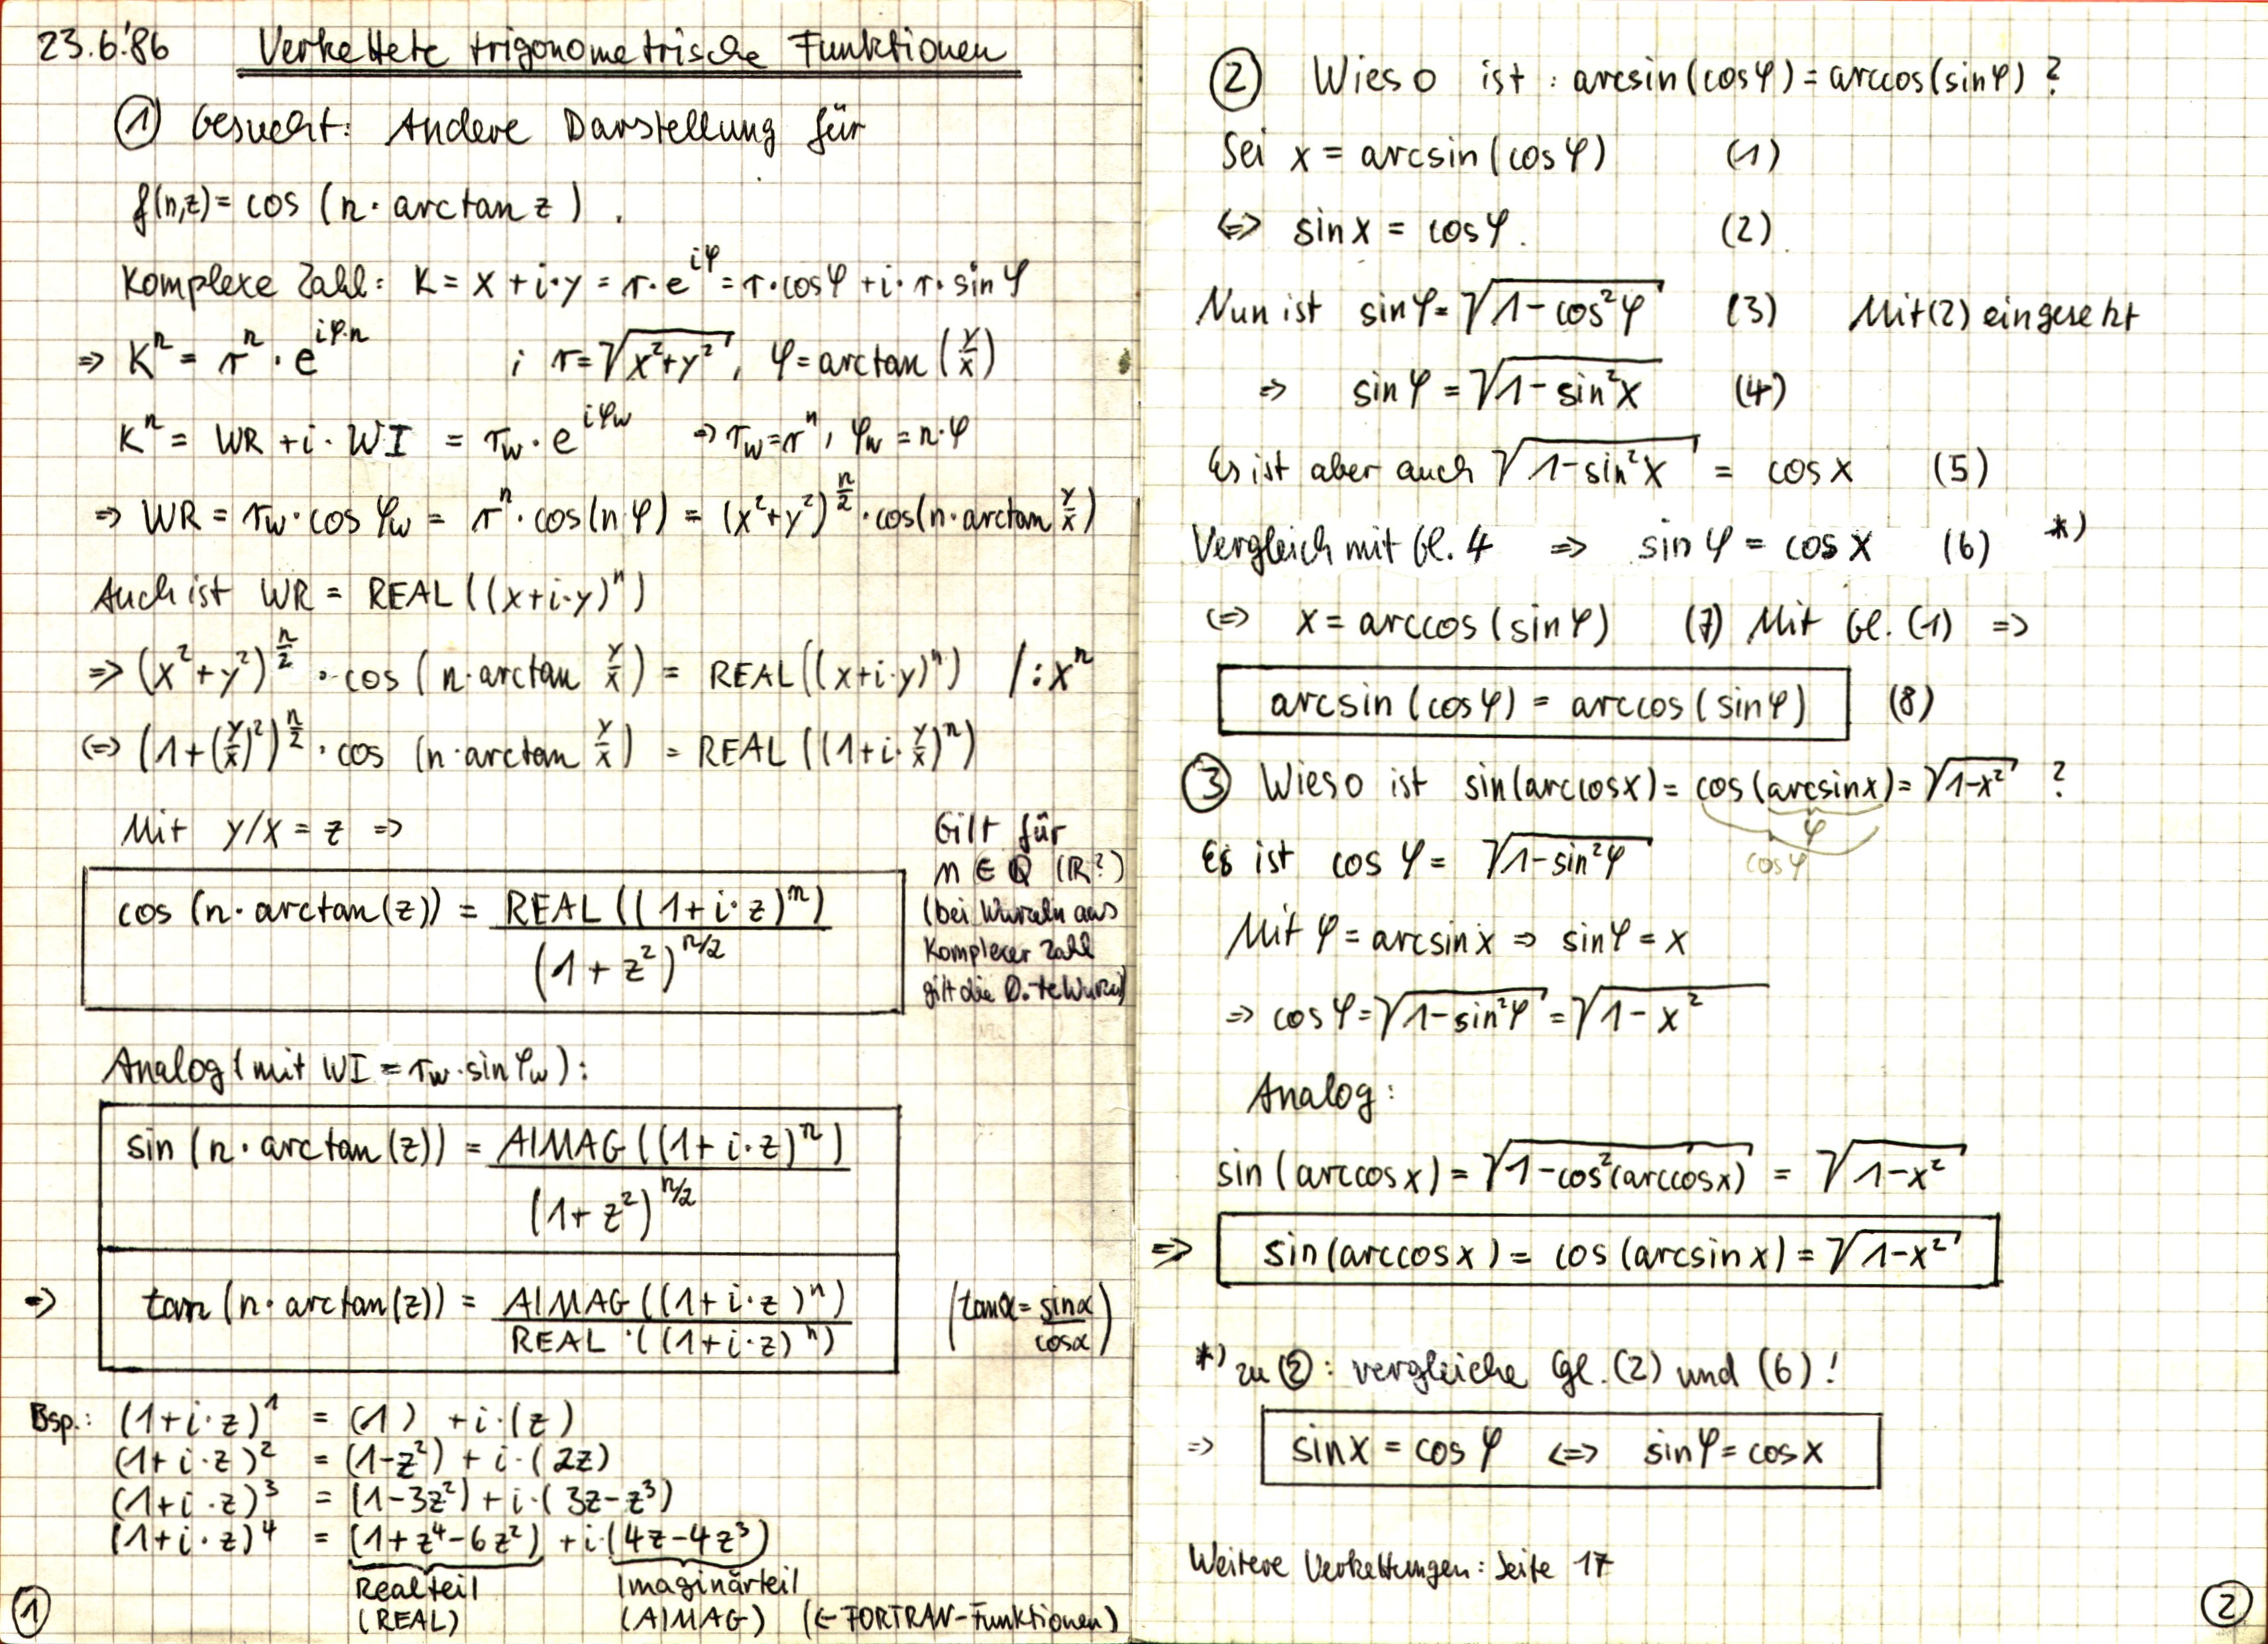 23.6.'86 Verkettete trigonometrische Funktionen
① Gesucht: Andere Darstellung für
f(n,z) = cos (n · arctan z) .
Komplexe Zahl: K = x + i·y = r·e^{iφ} = r·cosφ + i·r·sinφ
⇒ K^n = r^n · e^{iφ·n} ; r = √(x²+y²), φ = arctan (y/x)
K^n = WR + i · WI = r_w · e^{iφ_w} ⇒ r_w = r^n, φ_w = n·φ
⇒ WR = r_w · cos φ_w = r^n · cos(n φ) = (x²+y²)^{n/2} · cos(n·arctan y/x)
Auch ist WR = REAL((x+i·y)^n)
⇒ (x²+y²)^{n/2} · cos (n·arctan y/x) = REAL((x+i·y)^n) /:x^n
⇔ (1+(y/x)²)^{n/2} · cos (n·arctan y/x) = REAL ((1+i·y/x)^n)
Mit y/x = z ⇒
Gilt für
n ∈ Q (R?)
(bei Wurzeln aus
Komplexer Zahl
gilt die 0.te Wurzel)
cos (n · arctan(z)) = REAL ((1+i·z)^n) / (1+z²)^{n/2}
Analog (mit WI = r_w · sin φ_w):
sin (n · arctan(z)) = AIMAG ((1+i·z)^n) / (1+z²)^{n/2}
⇒ tan (n · arctan(z)) = AIMAG ((1+i·z)^n) / REAL ((1+i·z)^n) (tanα = sinα / cosα)
Bsp.: (1+i·z)^1 = (1) + i·(z)
(1+i·z)² = (1-z²) + i·(2z)
(1+i·z)³ = (1-3z²) + i·(3z-z³)
(1+i·z)⁴ = (1+z⁴-6z²) + i·(4z-4z³)
Realteil Imaginärteil
(REAL) (AIMAG) (← FORTRAN-Funktionen)
①
② Wieso ist : arcsin(cosφ) = arccos(sinφ) ?
Sei x = arcsin(cosφ) (1)
⇔ sin x = cosφ. (2)
Nun ist sinφ = √(1-cos²φ) (3) Mit (2) eingesetzt
⇒ sinφ = √(1-sin²x) (4)
Es ist aber auch √(1-sin²x) = cos x (5)
Vergleich mit Gl. 4 ⇒ sinφ = cos x (6) *)
⇔ x = arccos(sinφ) (7) Mit Gl. (1) ⇒
arcsin (cosφ) = arccos (sinφ) (8)
③ Wieso ist sin(arccosx) = cos(arcsinx) = √(1-x²) ?
φ
cosφ
Es ist cosφ = √(1-sin²φ)
Mit φ = arcsin x ⇒ sinφ = x
⇒ cosφ = √(1-sin²φ) = √(1-x²)
Analog:
sin (arccos x) = √(1-cos²(arccosx)) = √(1-x²)
⇒ sin(arccosx) = cos(arcsin x) = √(1-x²)
*) zu ②: vergleiche Gl. (2) und (6)!
⇒ sin x = cosφ ⇔ sinφ = cos x
Weitere Verkettungen: Seite 17
②